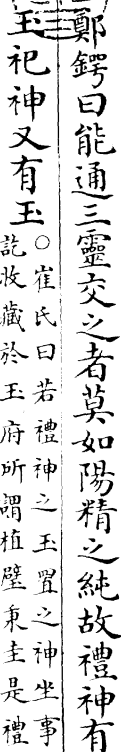 鄭鍔曰能通三靈交之者莫如陽精之純故禮神有
玉祀神又有玉
○崔氏曰若禮神之玉置之神坐事
訖收藏於玉府所謂植璧秉圭是禮